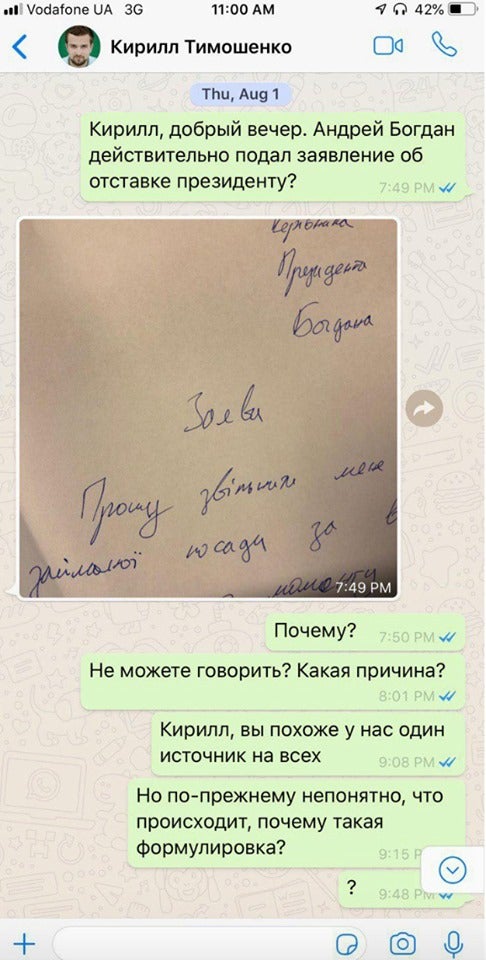 Vodafone UA 3G 11:00 AM 42%
Кирилл Тимошенко
Thu, Aug 1
Кирилл, добрый вечер. Андрей Богдан
действительно подал заявление об
отставке президенту?
7:49 PM
Президента
Богдана
Заява
Прошу звільнити мене
займаної посади за
7:49 PM
Почему?
7:50 PM
Не можете говорить? Какая причина?
8:01 PM
Кирилл, вы похоже у нас один
источник на всех
9:08 PM
Но по-прежнему непонятно, что
происходит, почему такая
формулировка?
9:15 P
?
9:48 PM